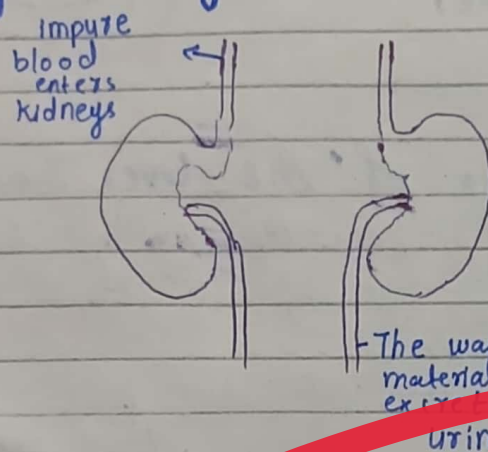 Impure
blood
enters
kidneys
The wa
material
excret
urin